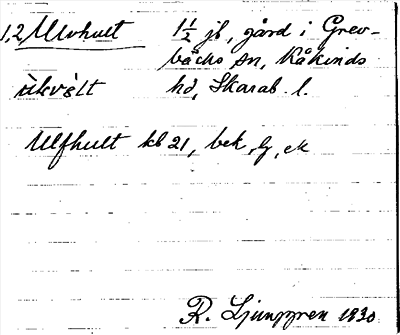 1,2 Ulvhult 1½ jb, gård i Grev-
bäcks sn, Kåkinds
hd, Skarab. l.
Ulfhult kb 21, bek,
R. Ljunggren 1930